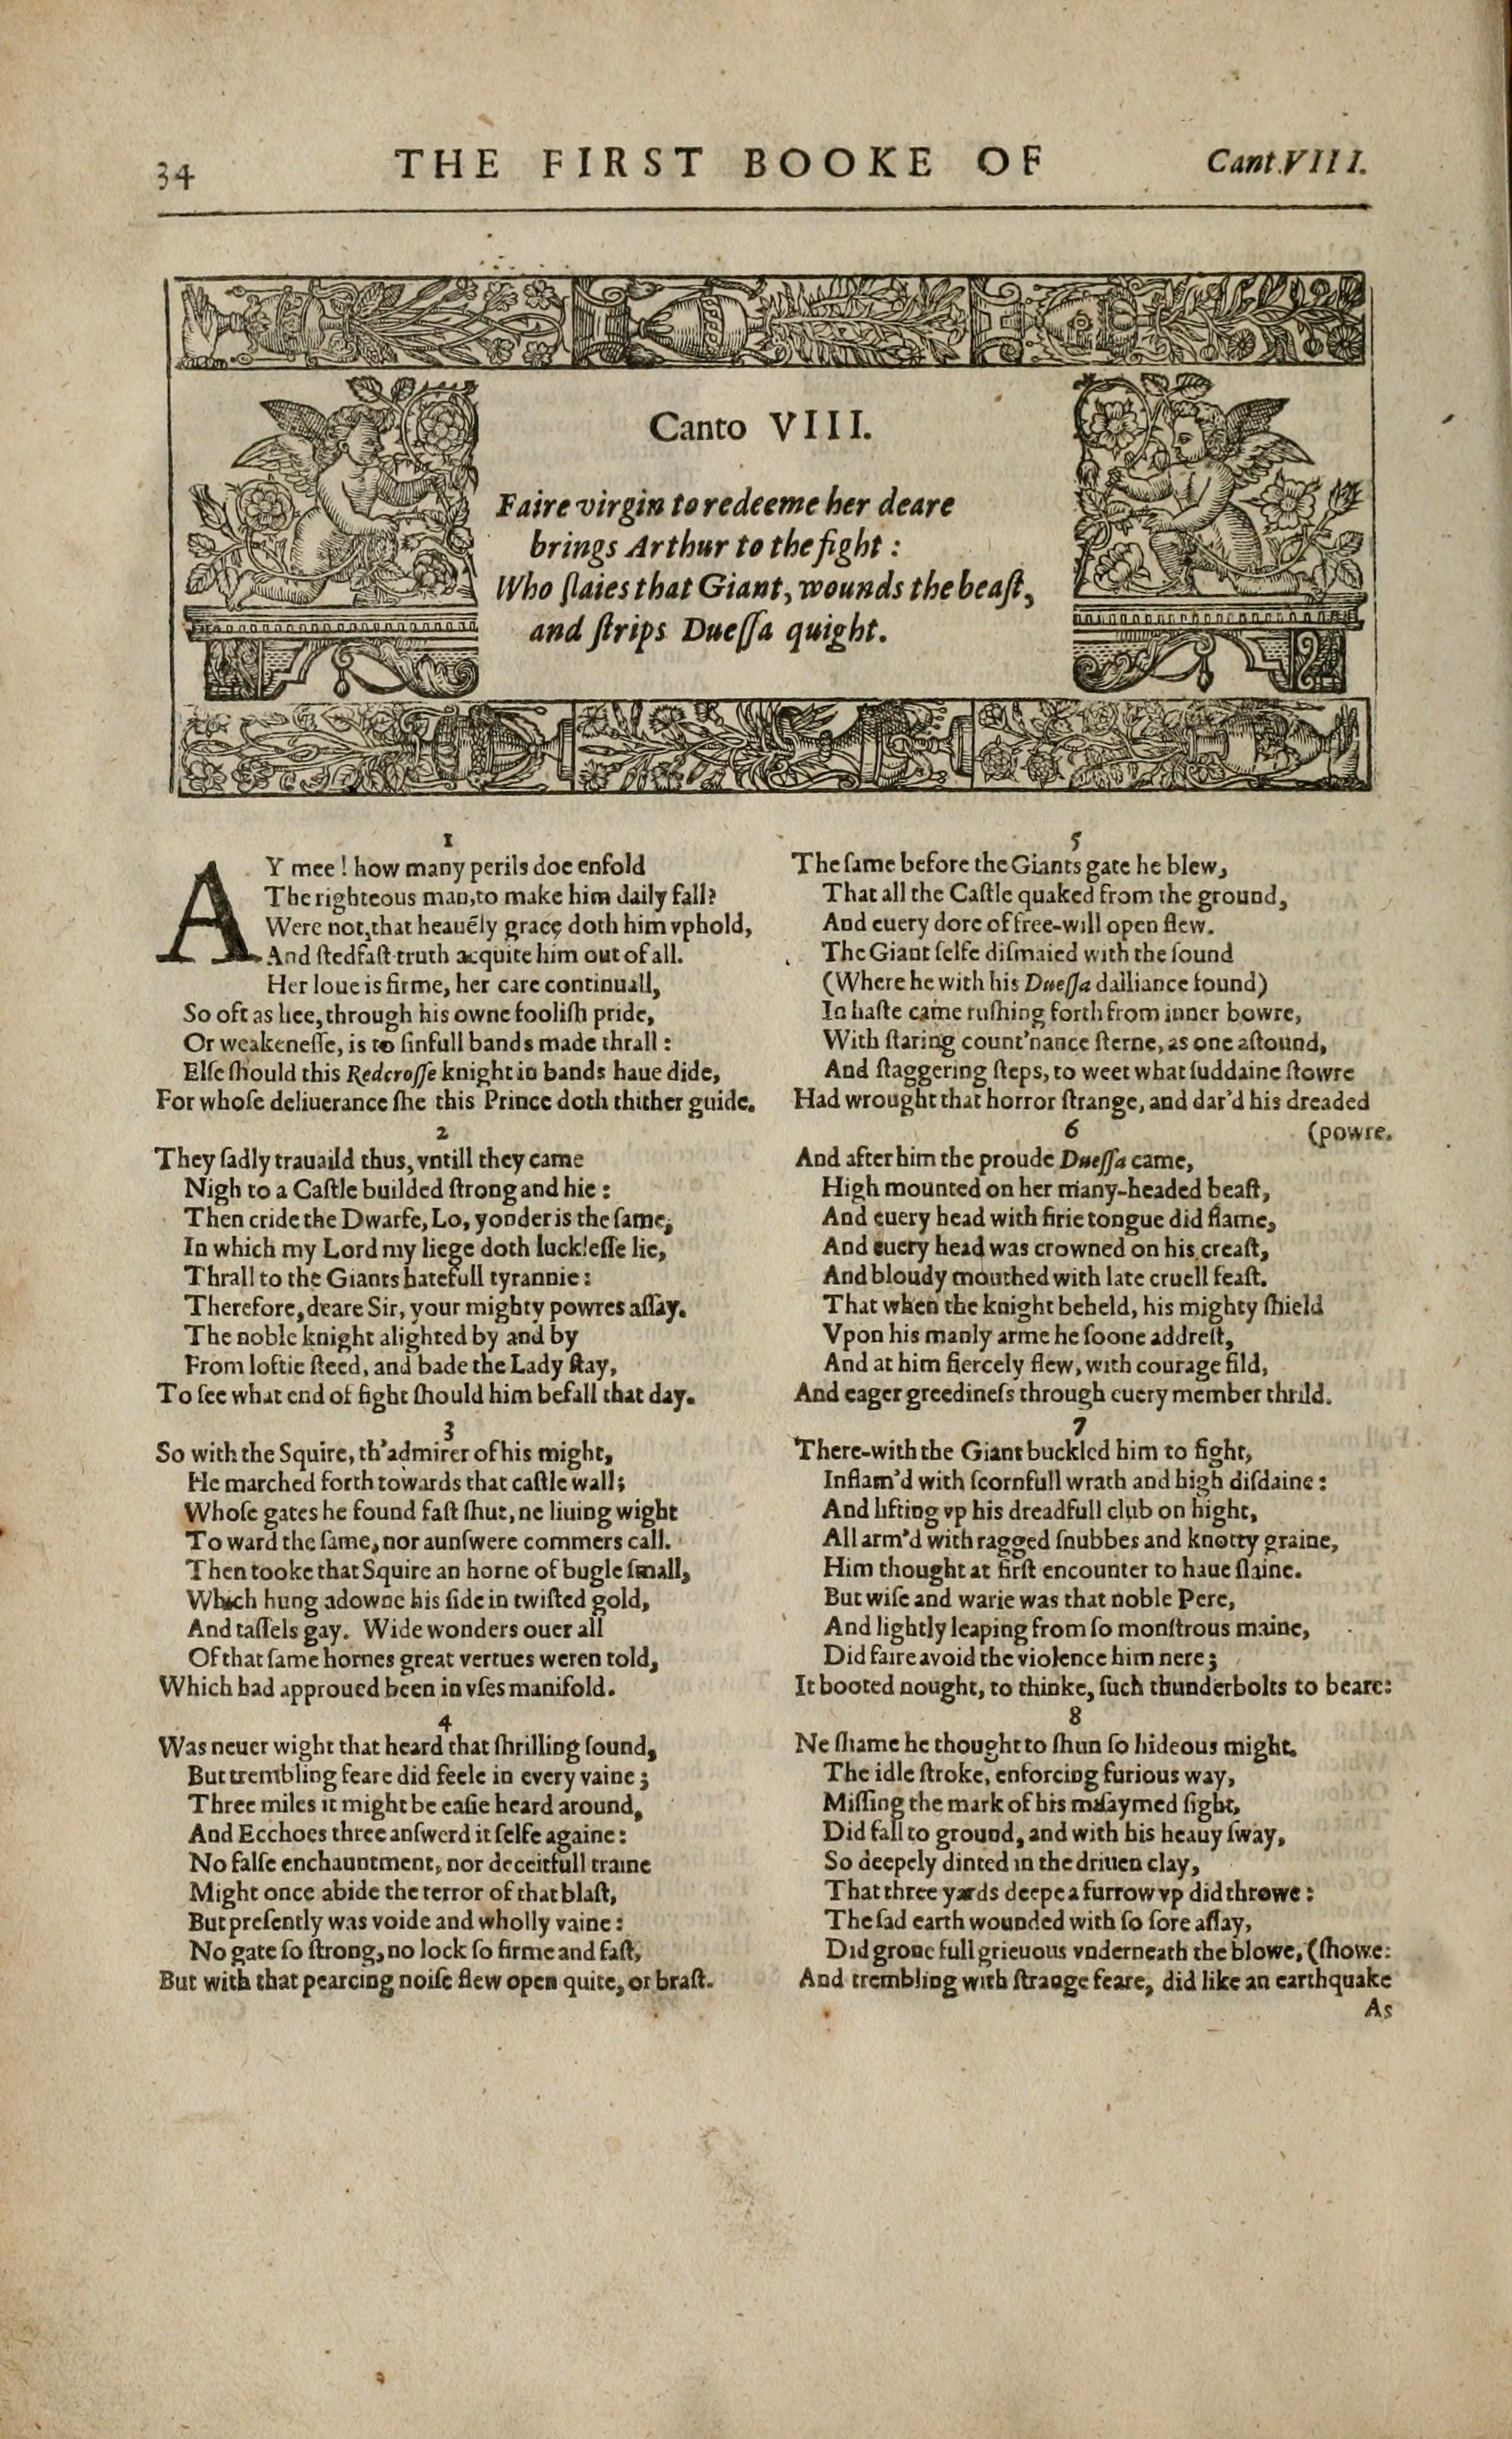 34 THE FIRST BOOKE OF Cant.VIII.
Canto VIII.
Faire virgin to redeeme her deare
brings Arthur to the fight :
Who ſlaies that Giant, wounds the beaſt,
and ſtrips Dueſſa quight.
1
AY mee ! how many perils doe enfold
The righteous man, to make him daily fall?
Were not, that heauēly grace doth him vphold,
And ſtedfaſt truth acquite him out of all.
Her loue is firme, her care continuall,
So oft as hee, through his owne fooliſh pride,
Or weakeneſſe, is to ſinfull bands made thrall :
Elſe ſhould this Redcroſſe knight in bands haue dide,
For whoſe deliuerance ſhe this Prince doth thither guide.
2
They ſadly trauaild thus, vntill they came
Nigh to a Caſtle builded ſtrong and hie :
Then cride the Dwarfe, Lo, yonder is the ſame,
In which my Lord my liege doth luckleſſe lie,
Thrall to the Giants hatefull tyrannie :
Therefore, deare Sir, your mighty powres aſſay.
The noble knight alighted by and by
From loftie ſteed, and bade the Lady ſtay,
To ſee what end of fight ſhould him befall that day.
3
So with the Squire, th'admirer of his might,
He marched forth towards that caſtle wall;
Whoſe gates he found faſt ſhut, ne liuing wight
To ward the ſame, nor aunſwere commers call.
Then tooke that Squire an horne of bugle ſmall,
Which hung adowne his ſide in twiſted gold,
And taſſels gay. Wide wonders ouer all
Of that ſame hornes great vertues weren told,
Which had approued been in vſes manifold.
4
Was neuer wight that heard that ſhrilling ſound,
But trembling feare did feele in every vaine ;
Three miles it might be eaſie heard around,
And Ecchoes three anſwerd it ſelfe againe :
No falſe enchauntment, nor deceitfull traine
Might once abide the terror of that blaſt,
But preſently was voide and wholly vaine :
No gate ſo ſtrong, no lock ſo firme and faſt,
But with that pearcing noiſe flew open quite, or braſt.
5
The ſame before the Giants gate he blew,
That all the Caſtle quaked from the ground,
And euery dore of free-will open flew.
The Giant ſelfe diſmaied with the ſound
(Where he with his Dueſſa dalliance found)
In haſte came ruſhing forth from inner bowre,
With ſtaring count'nance ſterne, as one aſtound,
And ſtaggering ſteps, to weet what ſuddaine ſtowre
Had wrought that horror ſtrange, and dar'd his dreaded
(powre.
6
And after him the proude Dueſſa came,
High mounted on her many-headed beaſt,
And euery head with firie tongue did flame,
And euery head was crowned on his creaſt,
And bloudy mouthed with late cruell feaſt.
That when the knight beheld, his mighty ſhield
Vpon his manly arme he ſoone addreſt,
And at him fiercely flew, with courage fild,
And eager greedineſs through euery member thrild.
7
There-with the Giant buckled him to fight,
Inflam'd with ſcornfull wrath and high diſdaine :
And lifting vp his dreadfull club on hight,
All arm'd with ragged ſnubbes and knotty graine,
Him thought at firſt encounter to haue ſlaine.
But wiſe and warie was that noble Pere,
And lightly leaping from ſo monſtrous maine,
Did faire avoid the violence him nere ;
It booted nought, to thinke, ſuch thunderbolts to beare:
8
Ne ſhame he thought to ſhun ſo hideous might.
The idle ſtroke, enforcing furious way,
Miſſing the mark of his miſaymed ſight,
Did fall to ground, and with his heauy ſway,
So deepely dinted in the driuen clay,
That three yards deepe a furrow vp did throwe :
The ſad earth wounded with ſo ſore aſſay,
Did grone full grieuous vnderneath the blowe, (ſhowe:
And trembling with ſtrange feare, did like an earthquake
As